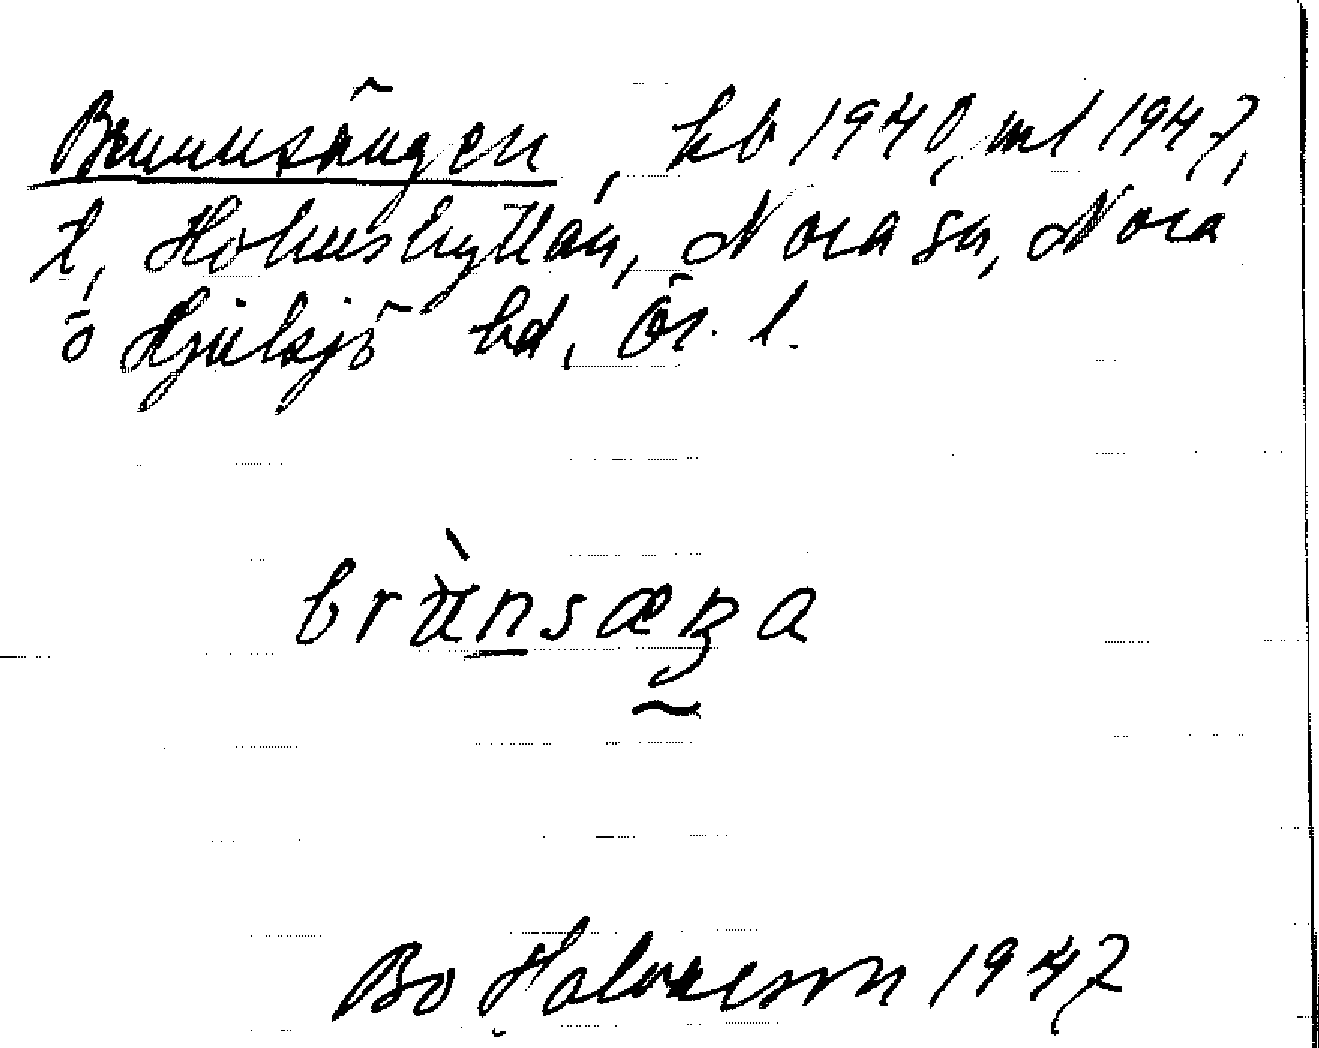 Brunnsängen, kb 1940, ml 1947,
t, Holmshyttan, Nora sn, Nora
o Hjulsjö bd, Ör. l.
brùnsæŋa
Bo Halvarsson 1947